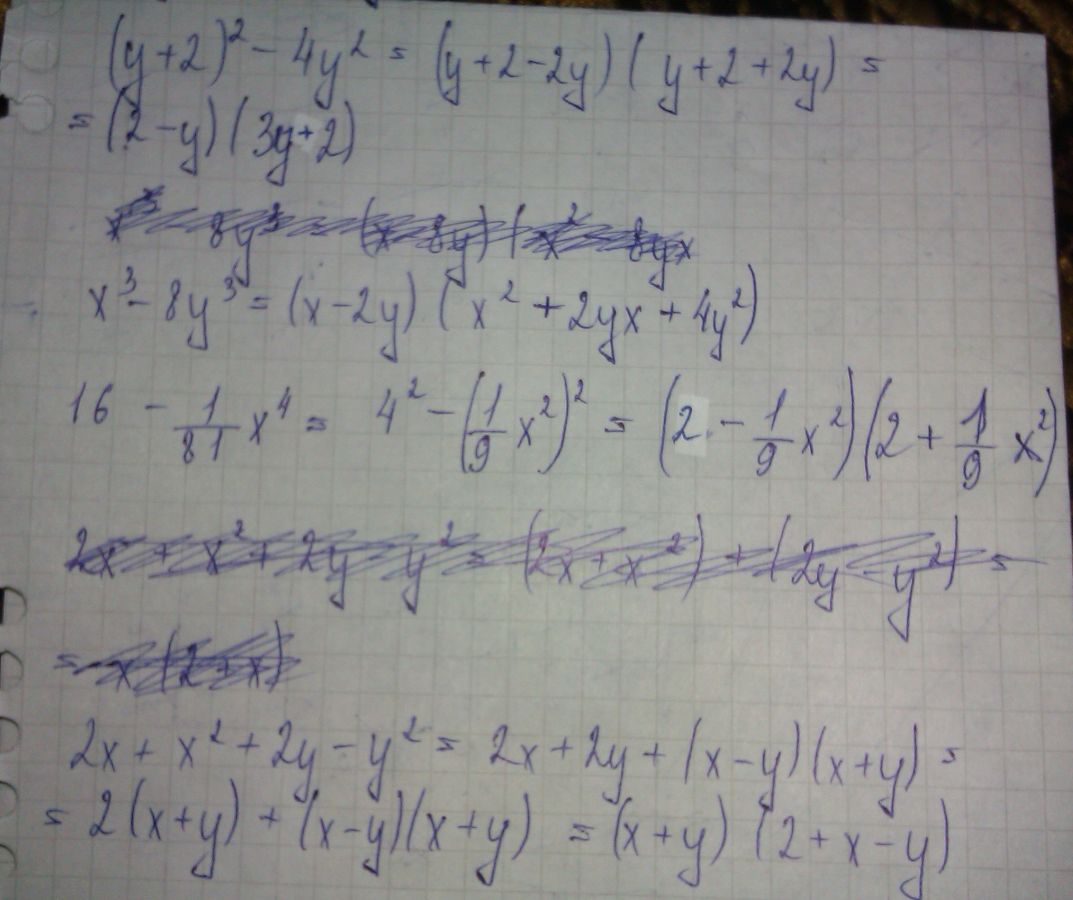 (y+2)² - 4y² = (y+2-2y)(y+2+2y) =
= (2-y)(3y+2)
x³ - 8y³ = (x-2y)(x² + 2yx + 4y²)
16 - 1/81 x⁴ = 4² - (1/9 x²)² = (2 - 1/9 x²)(2 + 1/9 x²)
2x + x² + 2y - y² = (2x + x²) + (2y - y²) =
= x(2+x)
2x + x² + 2y - y² = 2x + 2y + (x-y)(x+y) =
= 2(x+y) + (x-y)(x+y) = (x+y)(2+x-y)